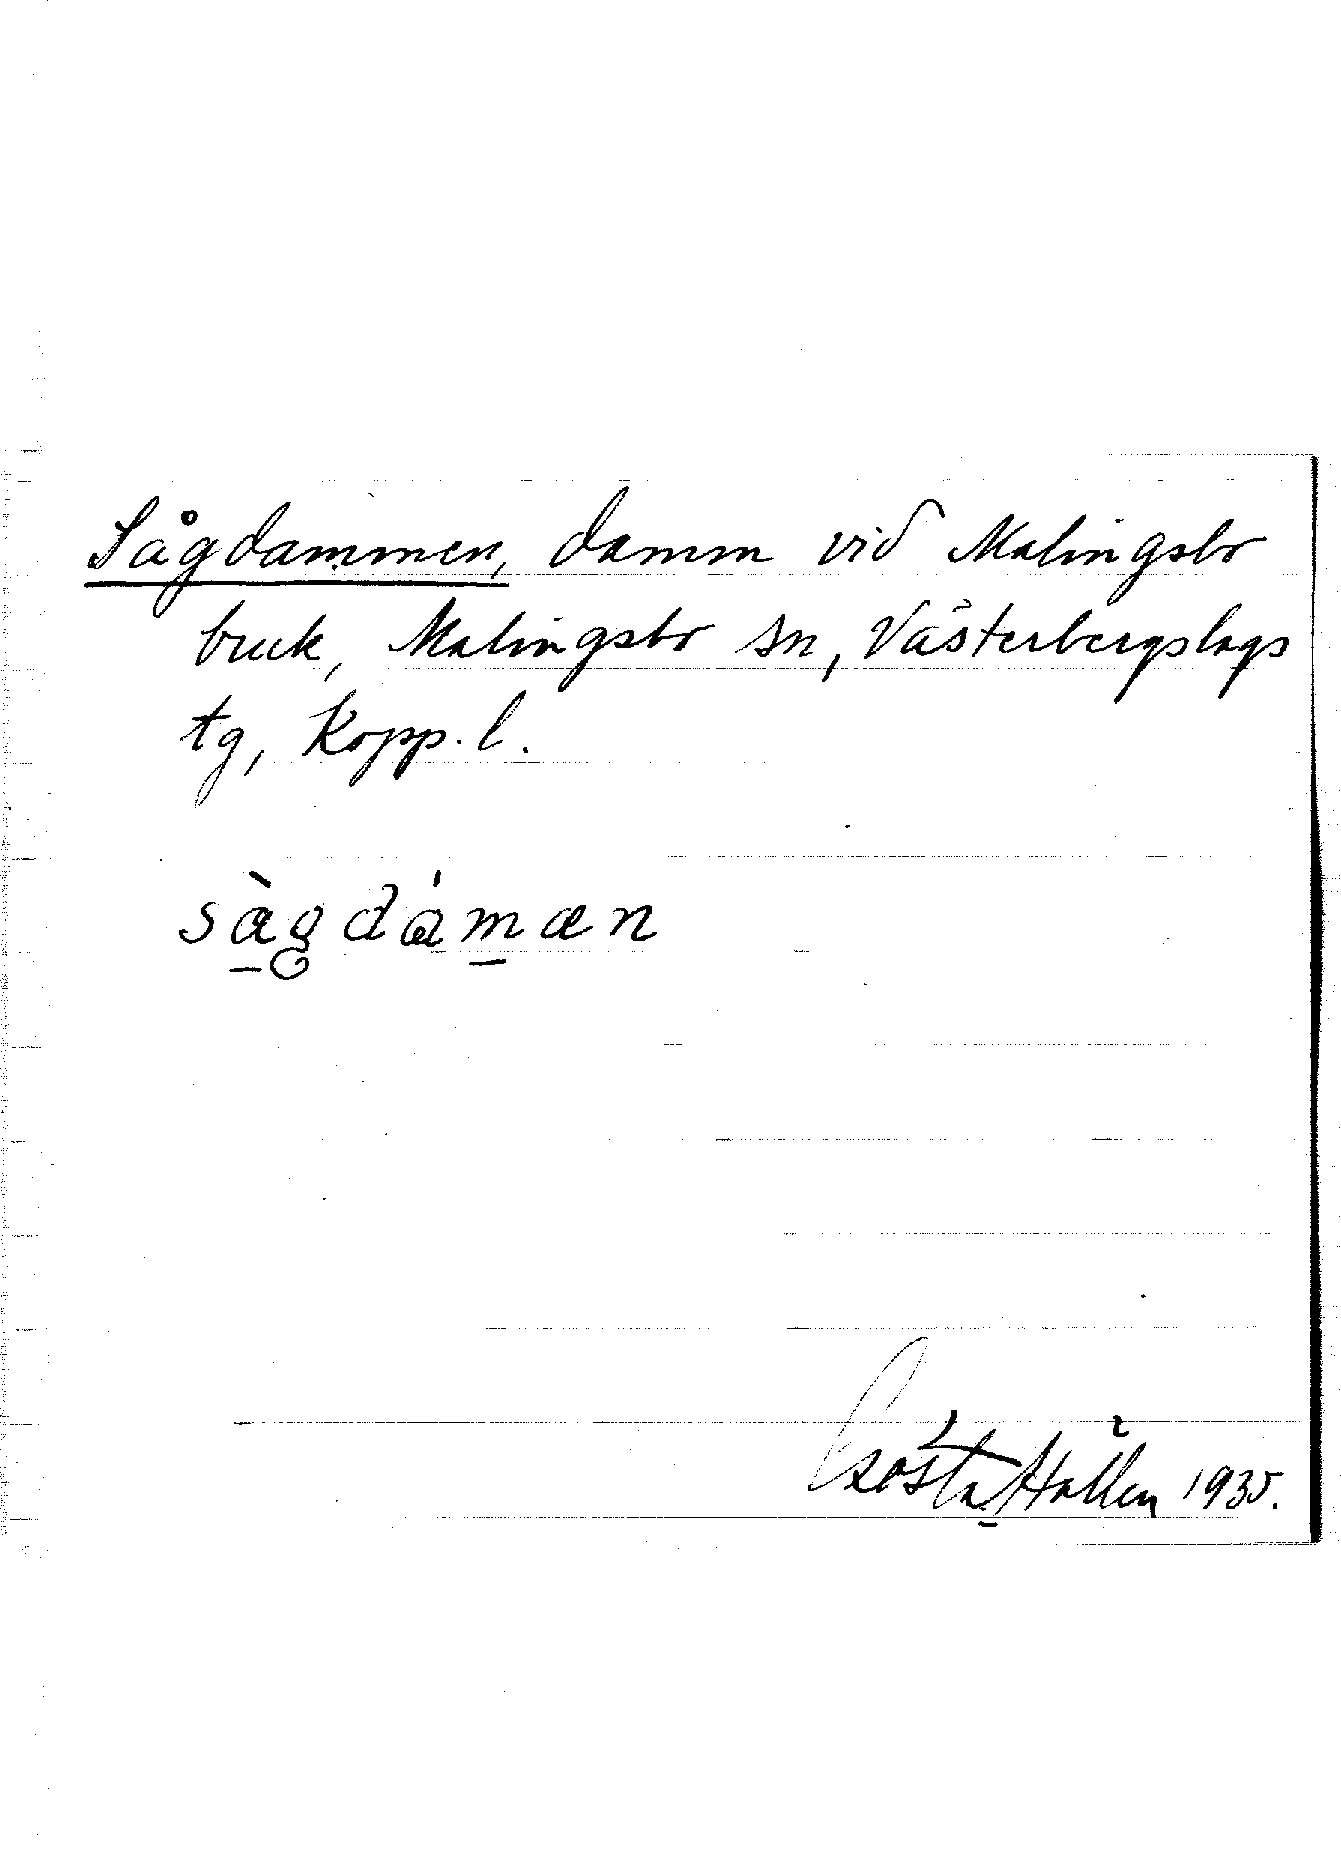 Sågdammen, damm vid Malingsbo
bruk, Malingsbo sn, Västerbergslags
tg, Kopp. l.
sàgdámæn
Gösta Hallén 1935.